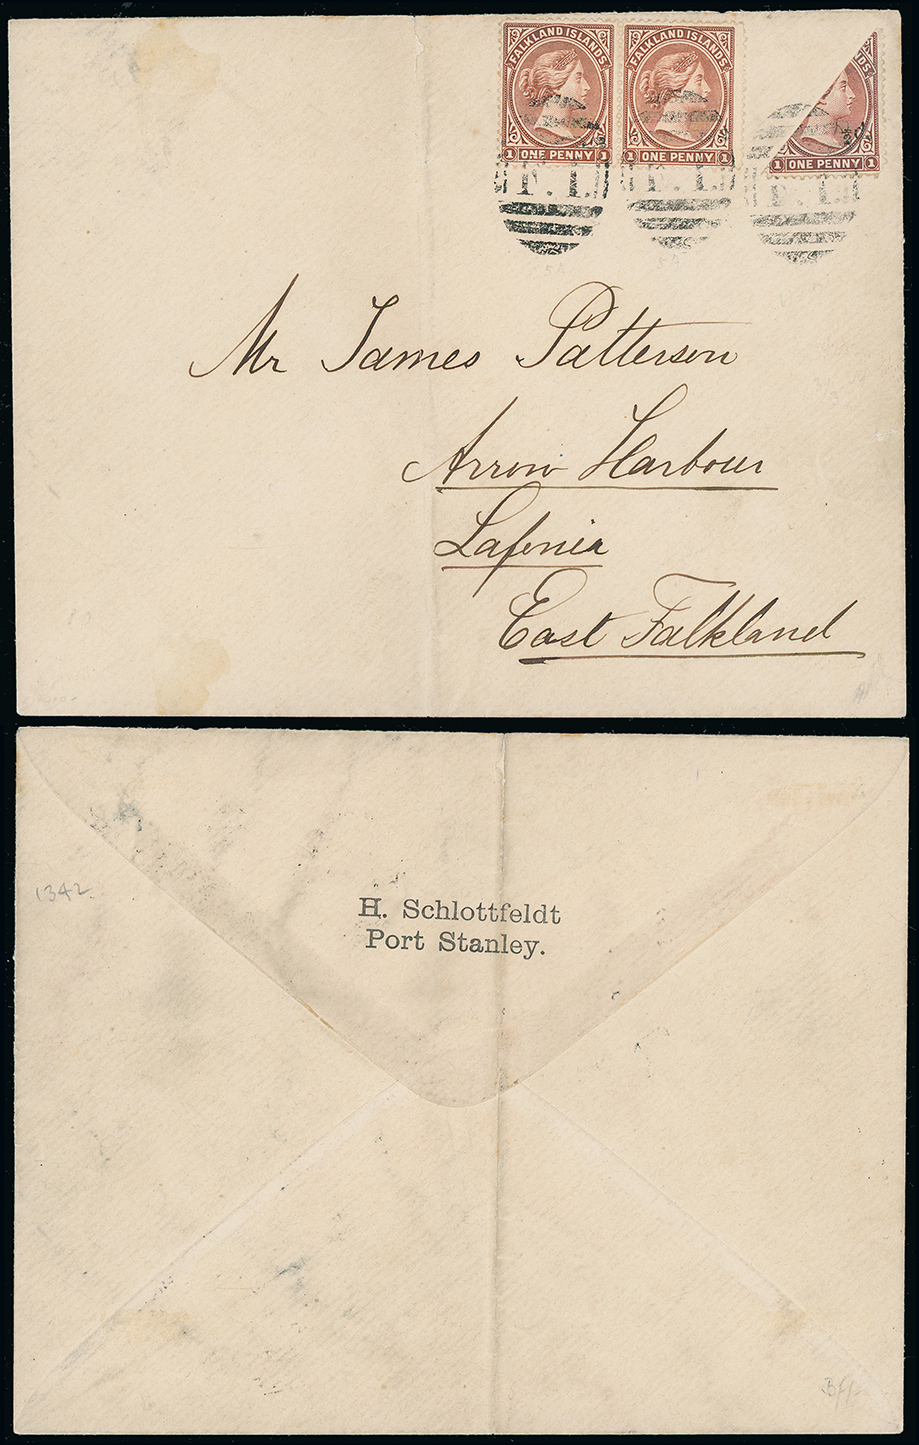 FALKLAND ISLANDS FALKLAND ISLANDS NDS
½d
1 ONE PENNY 1 1 ONE PENNY 1 1 ONE PENNY 1
F. I. F. I. F. I.
Mr James Patterson
Arrow Harbour
Lafonia
East Falkland
1342
H. Schlottfeldt
Port Stanley.